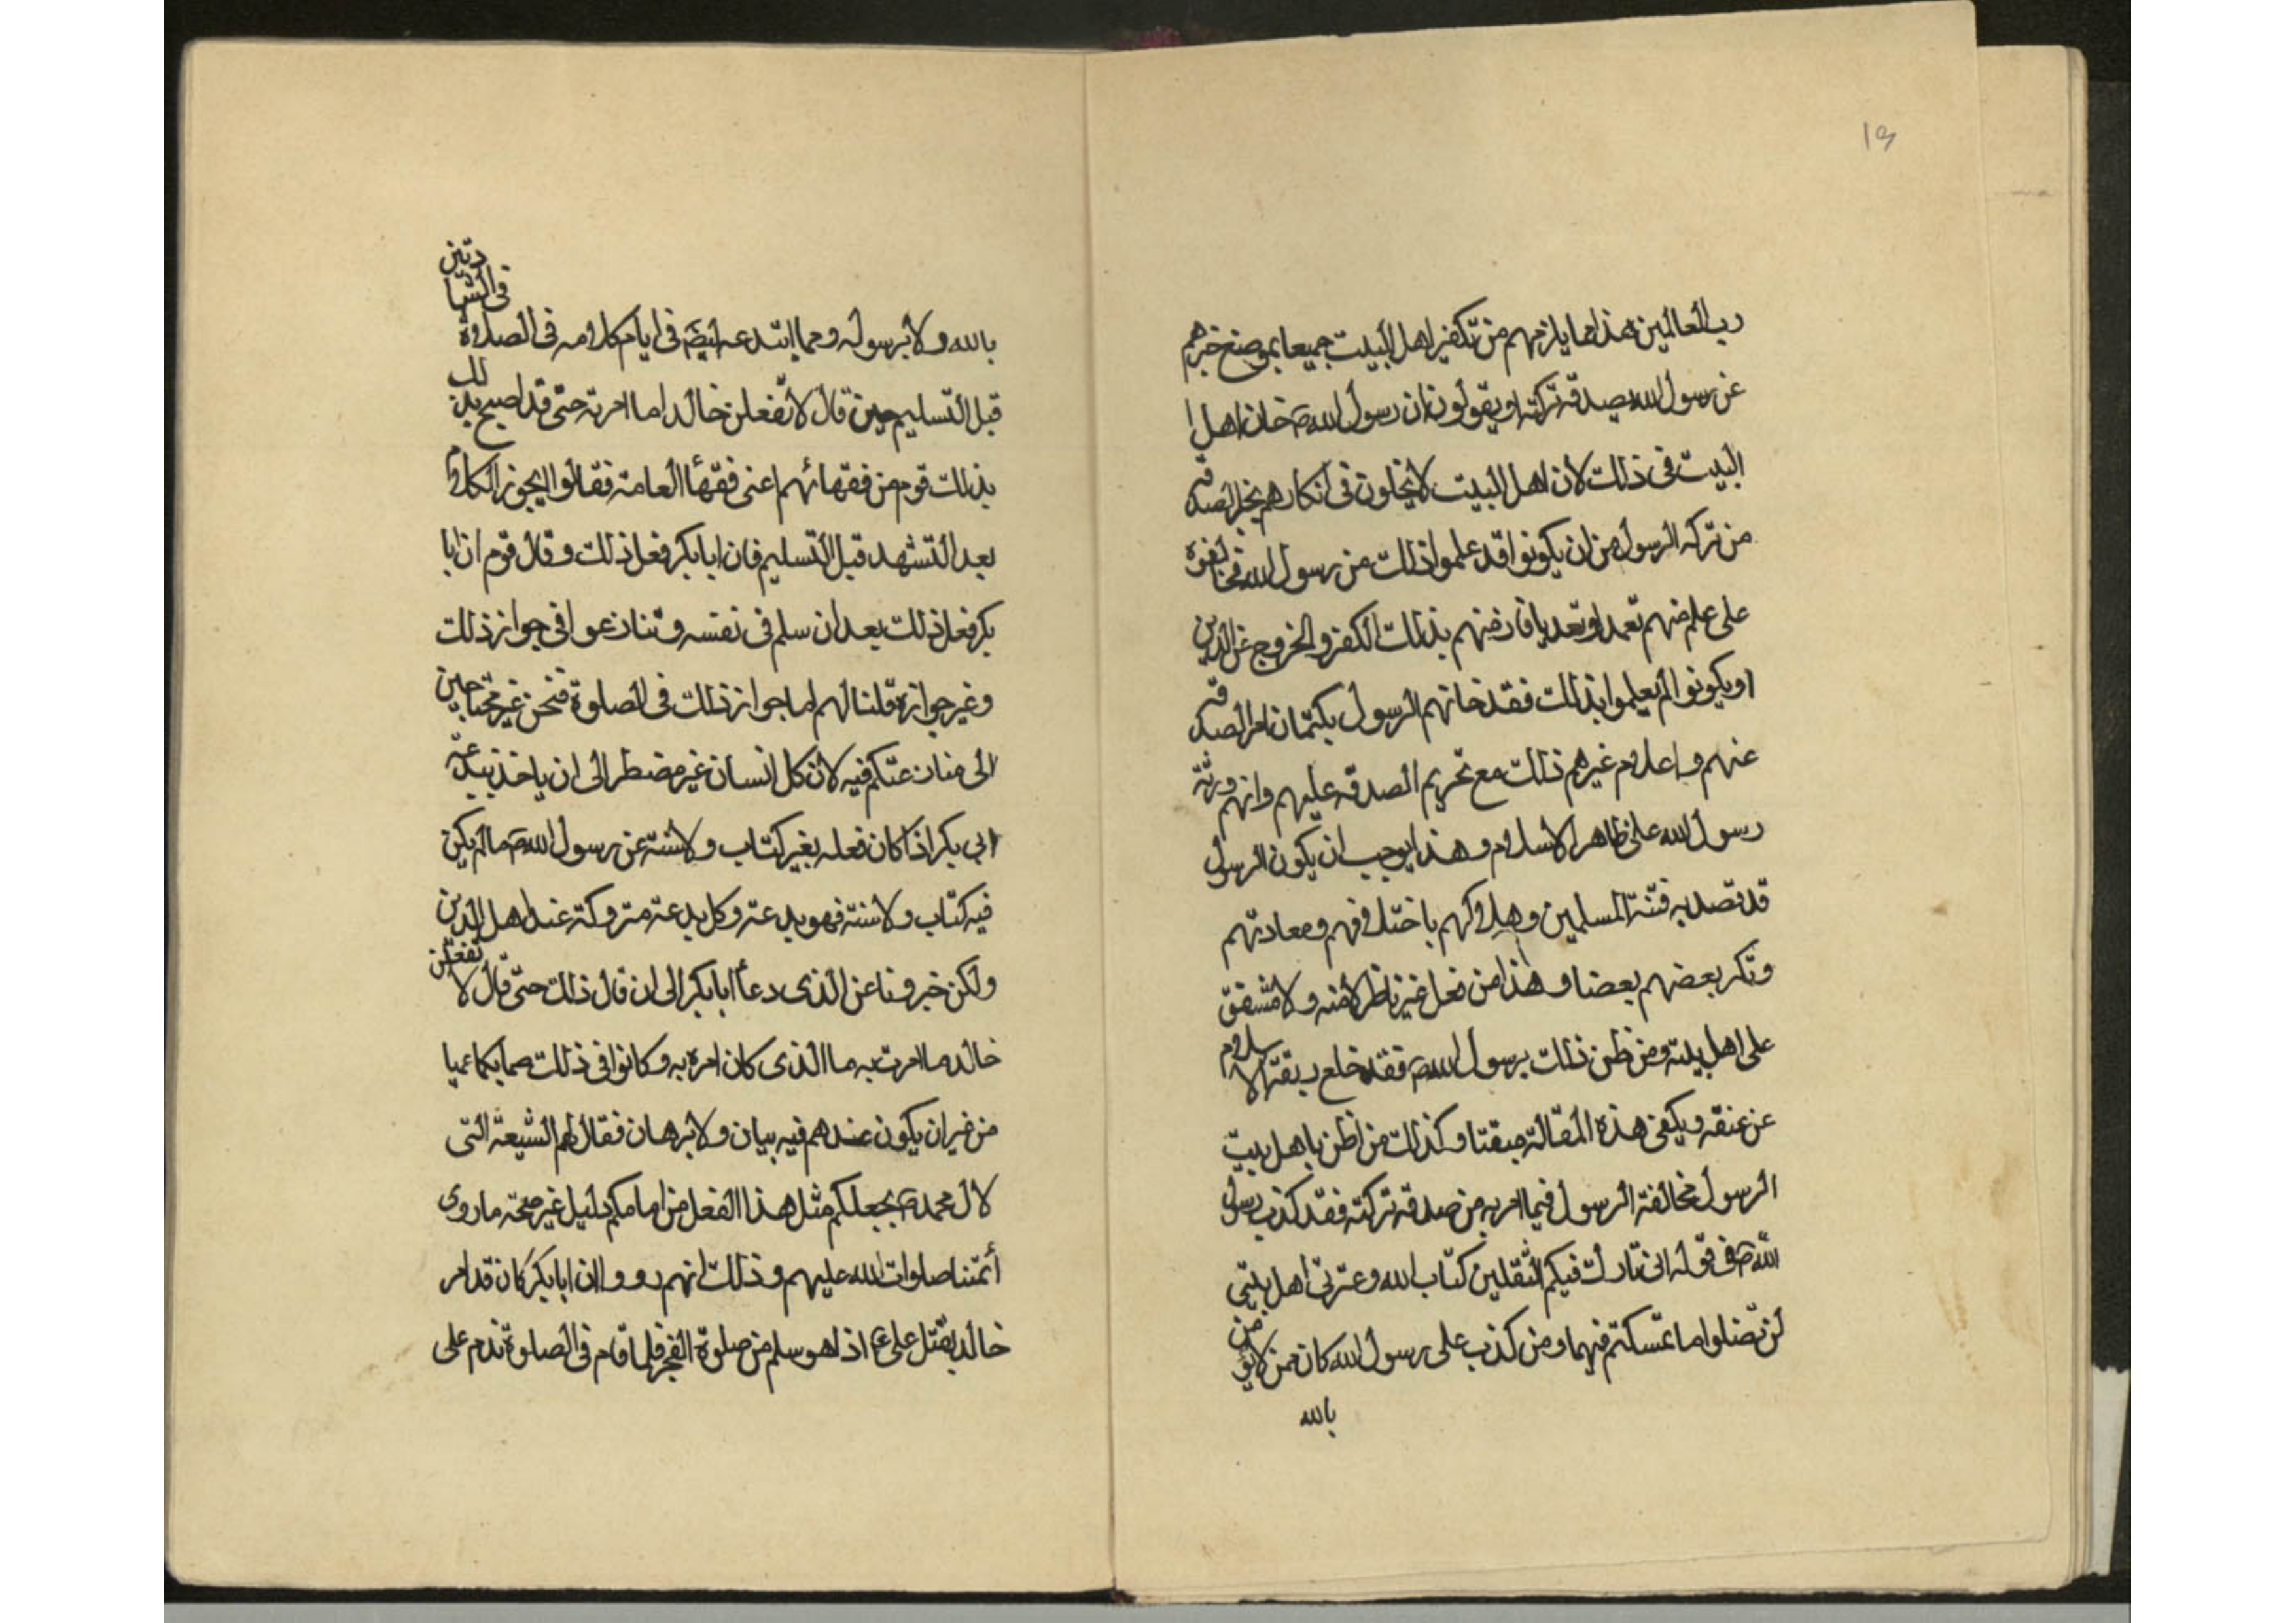 ١٩
رب العالمين هذا ما يلزمهم من تكفير اهل البيت جميعا بموضع خبرهم
عن رسول الله صدقة تركته او يقولون ان رسول الله ص خان اهل
البيت فى ذلك لان اهل البيت لا يخلون فى انكارهم بخبر الصدقة
من تركه الرسول من ان يكونوا قد علموا ذلك من رسول الله فخالفوه
على علم منهم تعمدا وتعديا فان منهم بذلك الكفر والخروج عن الدين
او يكونوا لم يعلموا بذلك فقد خانهم الرسول بكتمان امر الصدقة
عنهم واعلام غيرهم ذلك مع تحريم الصدقه عليهم وانهم ورثة
رسول الله على ظاهر الاسلام وهذا يوجب ان يكون الرسول
قد قصد به فتنة المسلمين وهلاكهم باختلافهم ومعادتهم
وتكر بعضهم بعضا وهذا من فعل غير ناظر لامته ولا مشفق
على اهل بيته ومن ظن ذلك برسول الله ص فقد خلع ربقة الاسلام
عن عنقه ويكفى هذه المقالة مقتا وكذلك من اظن باهل بيت
الرسول مخالفة الرسول فيما امر به من صدقة تركته فقد كذب رسول
الله ص فى قوله انى تارك فيكم الثقلين كتاب الله وعترتى اهل بيتى
لن تضلوا ما تمسكتم فيهما ومن كذب على رسول الله كان ممن لا يؤمن
بالله
بالله ولا برسوله ومما ابتدعه ايضا فى ايام كلامه فى الصلوة
فى الشهادتين
قبل التسليم حين قال لا تفعلن خالد اما امرته حتى قد اصبح بذلك
بذلك قوم من فقهائهم اعنى فقهأ العامة فقالوا ايجوز الكلام
بعد التشهد قبل التسليم فان ابا بكر فعل ذلك وقال قوم ان ابا
بكر فعل ذلك بعد ان سلم فى نفسه وتنازعوا فى جواز ذلك
وغير جوازه قلنا لهم اما جواز ذلك فى الصلوة فنحن غير محتاجين
الى منازعتكم فيه لان كل انسان غير مضطر الى ان ياخذ ببدعة
ابى بكر اذا كان فعله بغير كتاب ولا سنة عن رسول الله ص ما لم يكن
فيه كتاب ولا سنة فهو بدعة وكل بدعة متروكة عند اهل الدين
ولكن خبرونا عن الذى دعأ ابا بكر الى ان قال ذلك حتى قال لا تفعلن
خالد ما امرت به ما الذى كان امره به وكانوا فى ذلك صما بكما عميا
من غير ان يكون عندهم فيه بيان ولا برهان فقال لهم الشيعة التى
لال محمد ص بجهلكم مثل هذا الفعل من امامكم دليل غير صحة ما روى
أئمتنا صلوات الله عليهم وذلك انهم رووا ان ابا بكر كان قد امر
خالد بقتل على ع اذا هو سلم من صلوة الفجر فلما قام فى الصلوة ندم على